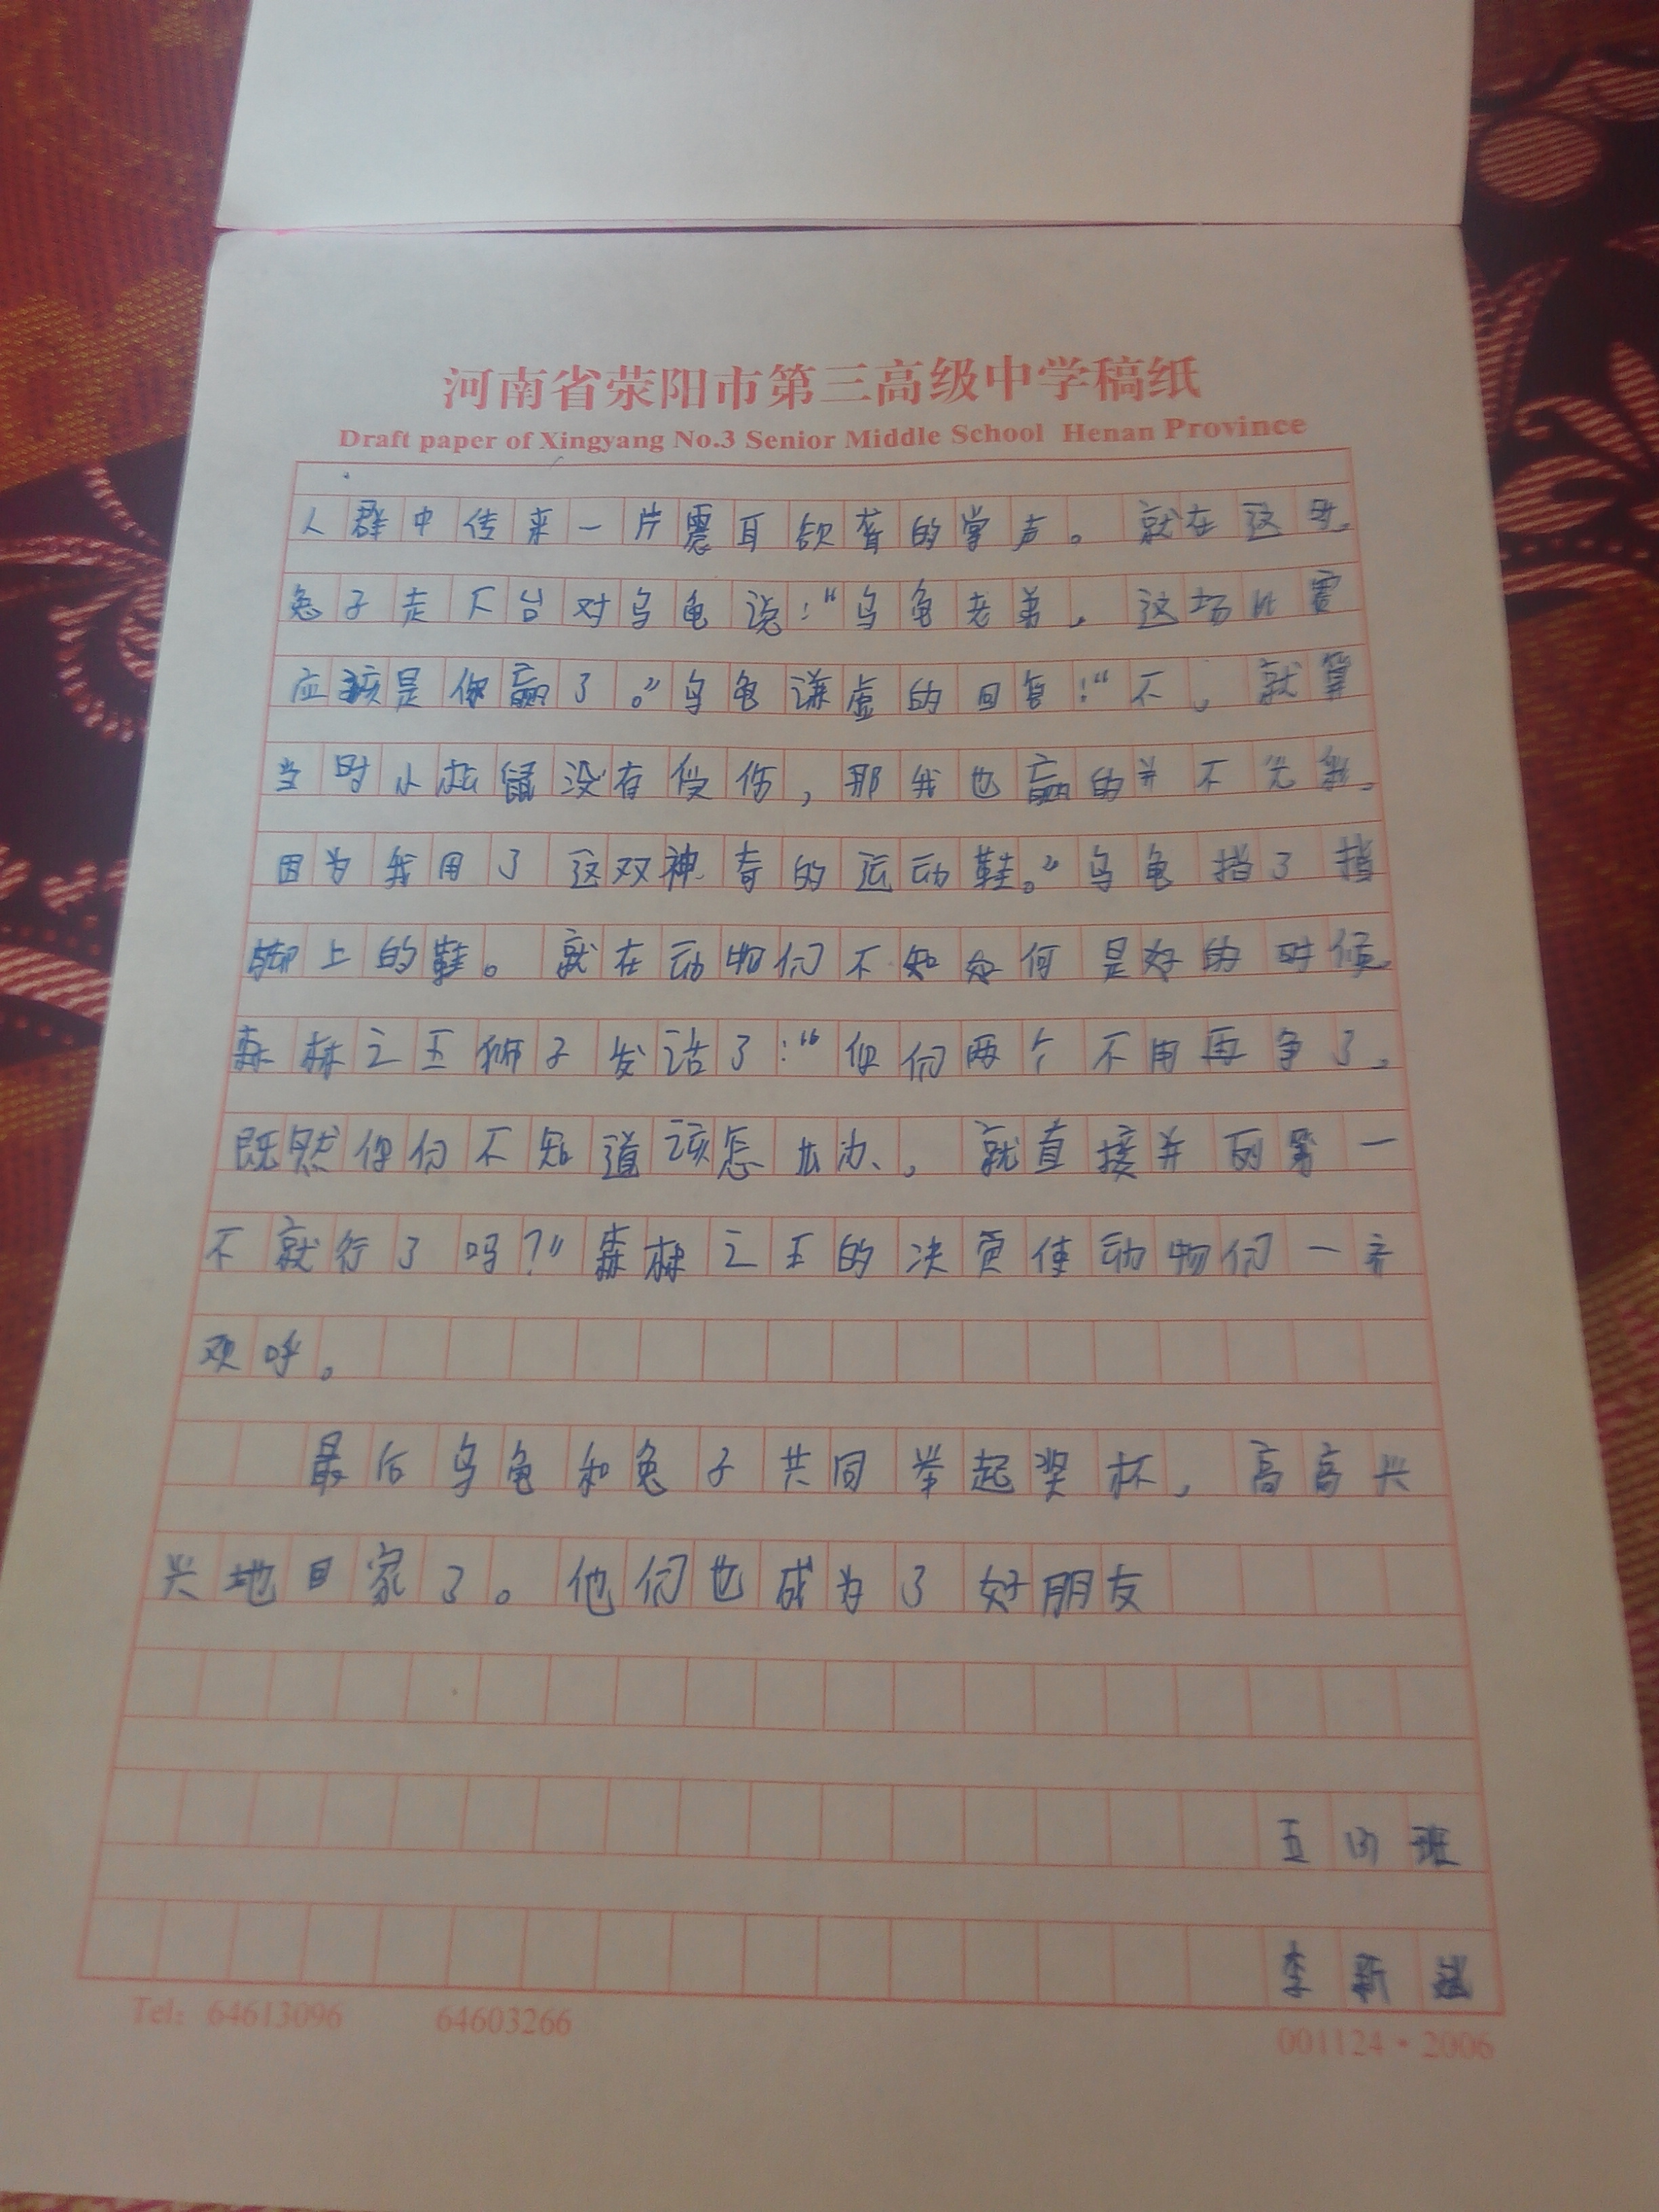 河南省荥阳市第三高级中学稿纸
Draft paper of Xingyang No.3 Senior Middle School Henan Province
人群中传来一片震耳欲聋的掌声。就在这时,
兔子走下台对乌龟说:“乌龟老弟,这场比赛
应该是你赢了。”乌龟谦虚的回答:“不,就算
当时小松鼠没有受伤,那我也赢的并不光彩,
因为我用了这双神奇的运动鞋。”乌龟指了指
脚上的鞋。就在动物们不知如何是好的时候,
森林之王狮子发话了:“你们两个不用再争了,
既然你们不知道该怎么办,就直接并列第一
不就行了吗?”森林之王的决定使动物们一齐
欢呼。
最后乌龟和兔子共同举起奖杯,高高兴
兴地回家了。他们也成为了好朋友
五(3)班
李新
Tel: 64613096 64603266
001124·2006